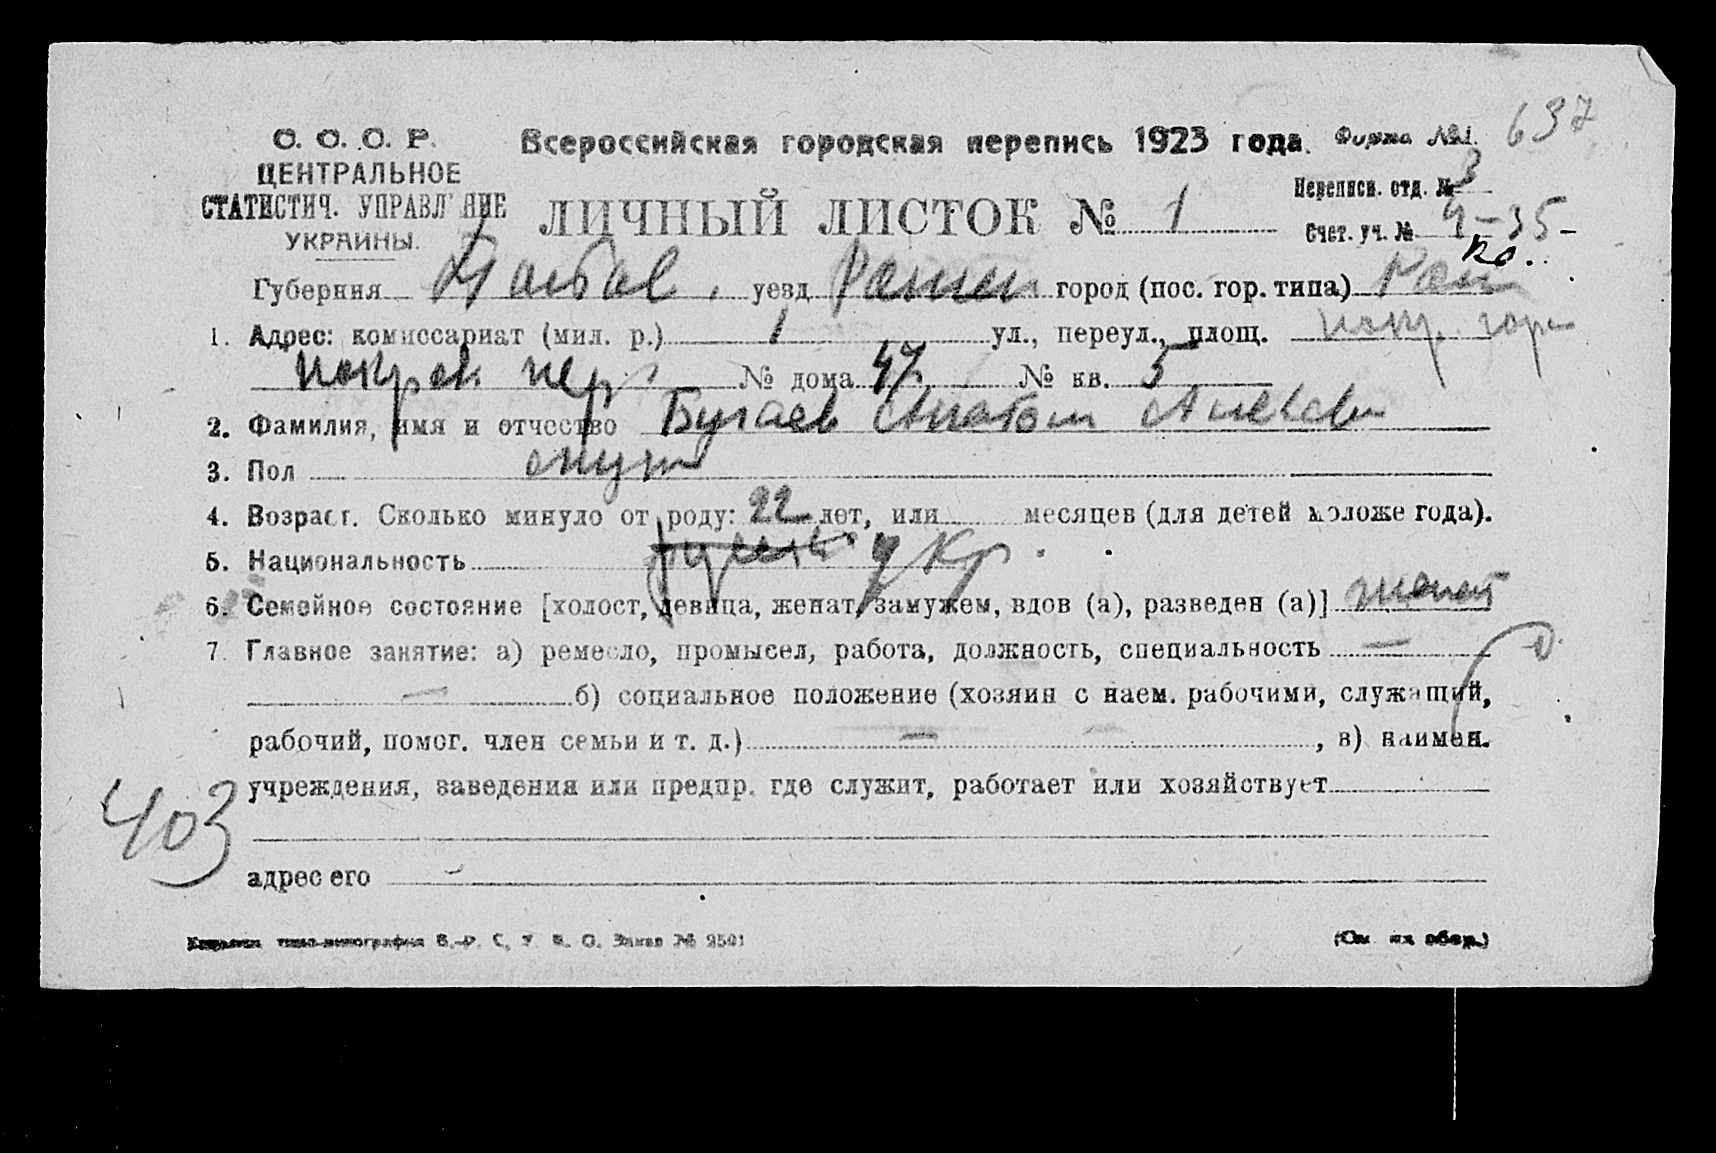 С. С. С. Р.
ЦЕНТРАЛЬНОЕ
СТАТИСТИЧ. УПРАВЛЕНИЕ
УКРАИНЫ.
Всероссийская городская перепись 1923 года. Форма №1. 637
ЛИЧНЫЙ ЛИСТОК № 1
Переписн. отд. № 3
Счет. уч. № 4-35-
Губерния Полтав. уезд Ромен город (пос. гор. типа) Ром
1. Адрес: комиссариат (мил. р.) 1 ул., переул., площ. покр. гор
покров пер № дома 47 № кв. 5
2. Фамилия, имя и отчество Бугаев Анатол Алексеев
3. Пол муж
4. Возраст. Сколько минуло от роду: 22 лет, или месяцев (для детей моложе года).
5. Национальность русск укр.
6. Семейное состояние [холост, девица, женат, замужем, вдов (а), разведен (а)] женат
7. Главное занятие: а) ремесло, промысел, работа, должность, специальность —
— б) социальное положение (хозяин с наем. рабочими, служащий,
рабочий, помог. член семьи и т. д.) — , в) наимен.
учреждения, заведения или предпр. где служит, работает или хозяйствует
403
адрес его
(См. на обор.)